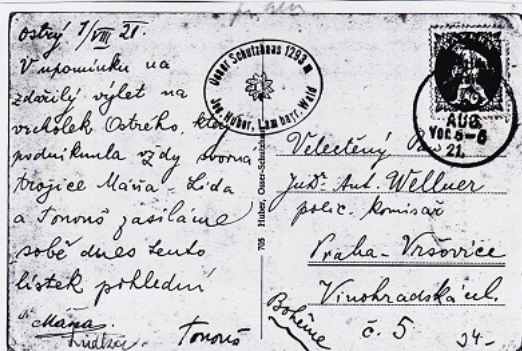 Ostrý 1/VIII 21.
V upomínku na
zdařilý výlet na
vrcholek Ostrého, který
podniknula vždy svorná
trojice Máňa - Lída
a Tonouš zasíláme
sobě dnes tento
lístek pohlední
Máňa
Tonouš
Osser Schutzhaus 1293 m
Jos. Huber, Lam bayr. Wald
705 Huber, Osser-Schutzhaus
AUG.
Vor. 5-6
21.
Velectěný Pan
JuDr. Ant. Wellner
polic. komisař
Praha-Vršovice
Vinohradská ul.
č. 5
Bohême